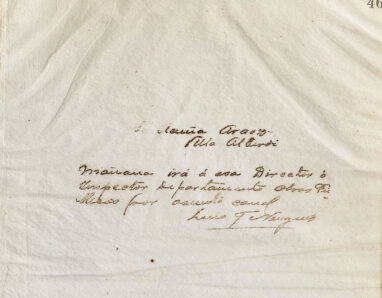 46
Araoz
Villa Alberdi
Mañana irá á esa Director ó
Inspector departamento Obras Pú
blicas por asunto canal
Lucas